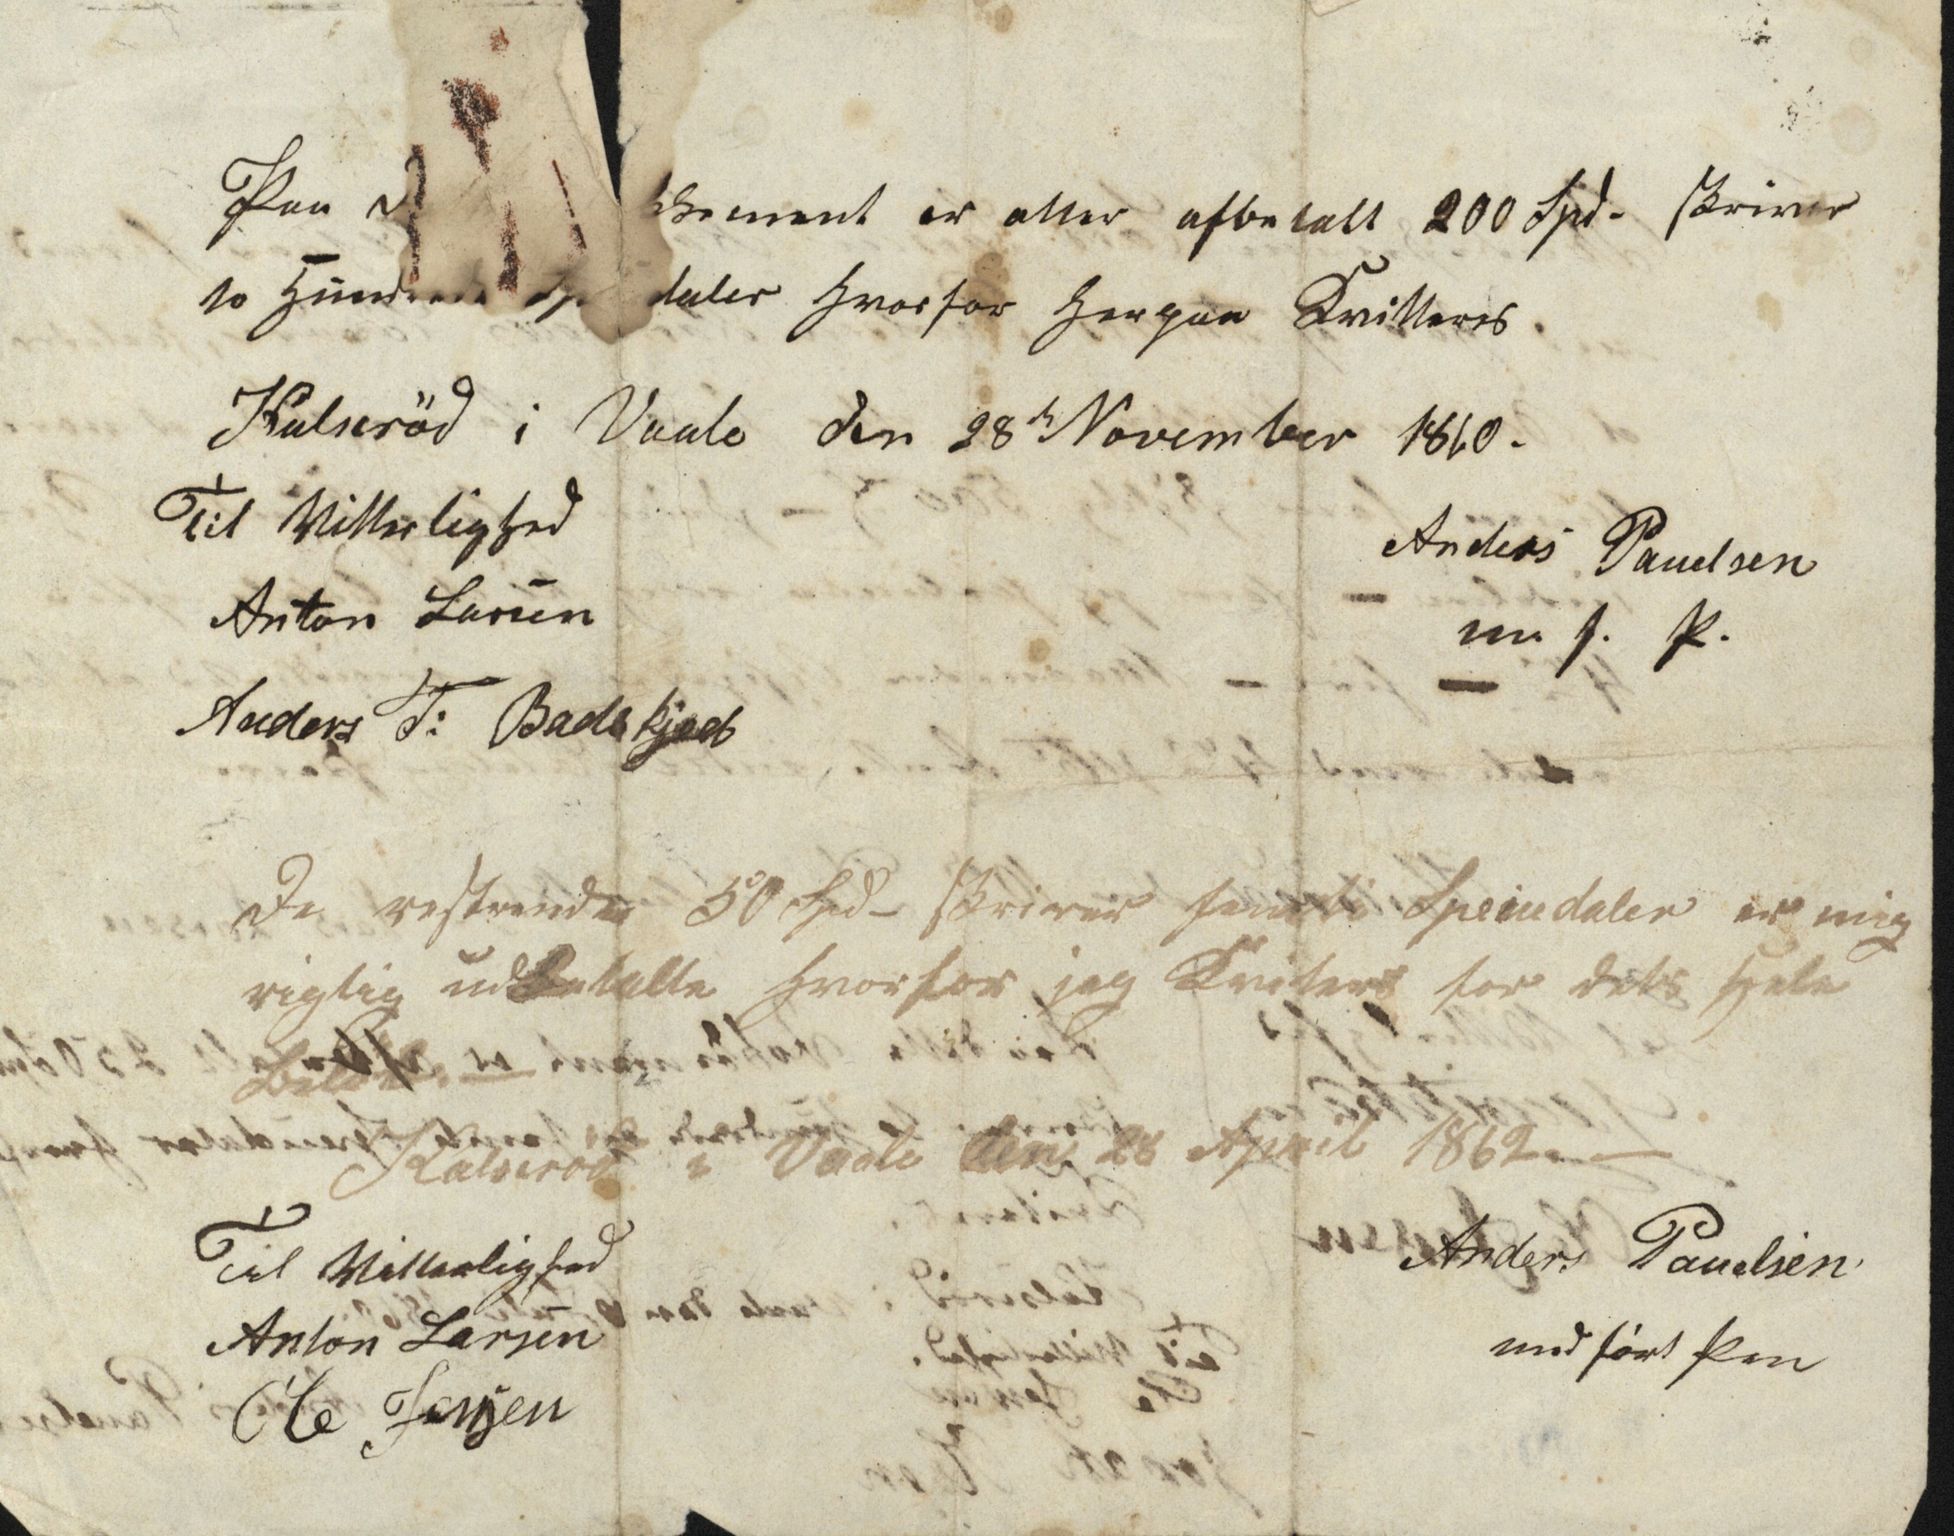 Paa d kument er atter afbetalt 200 Spd. skriver
to Hundrede Spe daler hvorfor herpaa Kvitteres.
Kalseröd i Vaale den 28de November 1860.
Til Vitterlighed
Anders Pauelsen
Anton Larsen
m. f. P.
Anders T:
De resterende 50 Spd. skriver femti Speciedaler er mig
rigtig udbetalte hvorfor jeg Kviterer for dets hele
Beløb. —
Kalseröd i Vaale den 28 April 1862. —
Til Vitterlighed
Anders Pauelsen
Anton Larsen
med ført Pen
Ole Jensen